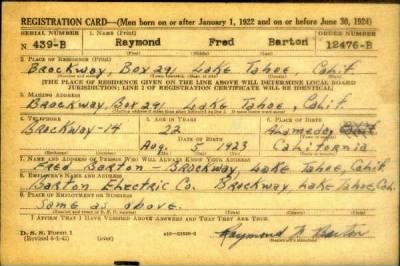 REGISTRATION CARD—(Men born on or after January 1, 1922 and on or before June 30, 1924)
SERIAL NUMBER 1. NAME (Print) ORDER NUMBER
N 439-B Raymond Fred Barton 12476-B
(First) (Middle) (Last)
2. PLACE OF RESIDENCE (Print)
Brockway, Box 291 Lake Tahoe, Calif.
(THE PLACE OF RESIDENCE GIVEN ON THE LINE ABOVE WILL DETERMINE LOCAL BOARD
JURISDICTION; LINE 2 OF REGISTRATION CERTIFICATE WILL BE IDENTICAL)
3. MAILING ADDRESS
Brockway, Box 291 Lake Tahoe, Calif.
4. TELEPHONE 5. AGE IN YEARS 6. PLACE OF BIRTH
Brockway-14 22 Alameda
DATE OF BIRTH
Aug. 5 1923 California
7. NAME AND ADDRESS OF PERSON WHO WILL ALWAYS KNOW YOUR ADDRESS
Fred Barton - Brockway, Lake Tahoe, Calif.
8. EMPLOYER'S NAME AND ADDRESS
Barton Electric Co. Brockway Lake Tahoe, Cal.
9. PLACE OF EMPLOYMENT OR BUSINESS
Same as above.
I AFFIRM THAT I HAVE VERIFIED ABOVE ANSWERS AND THAT THEY ARE TRUE.
D. S. S. Form 1
Raymond F. Barton